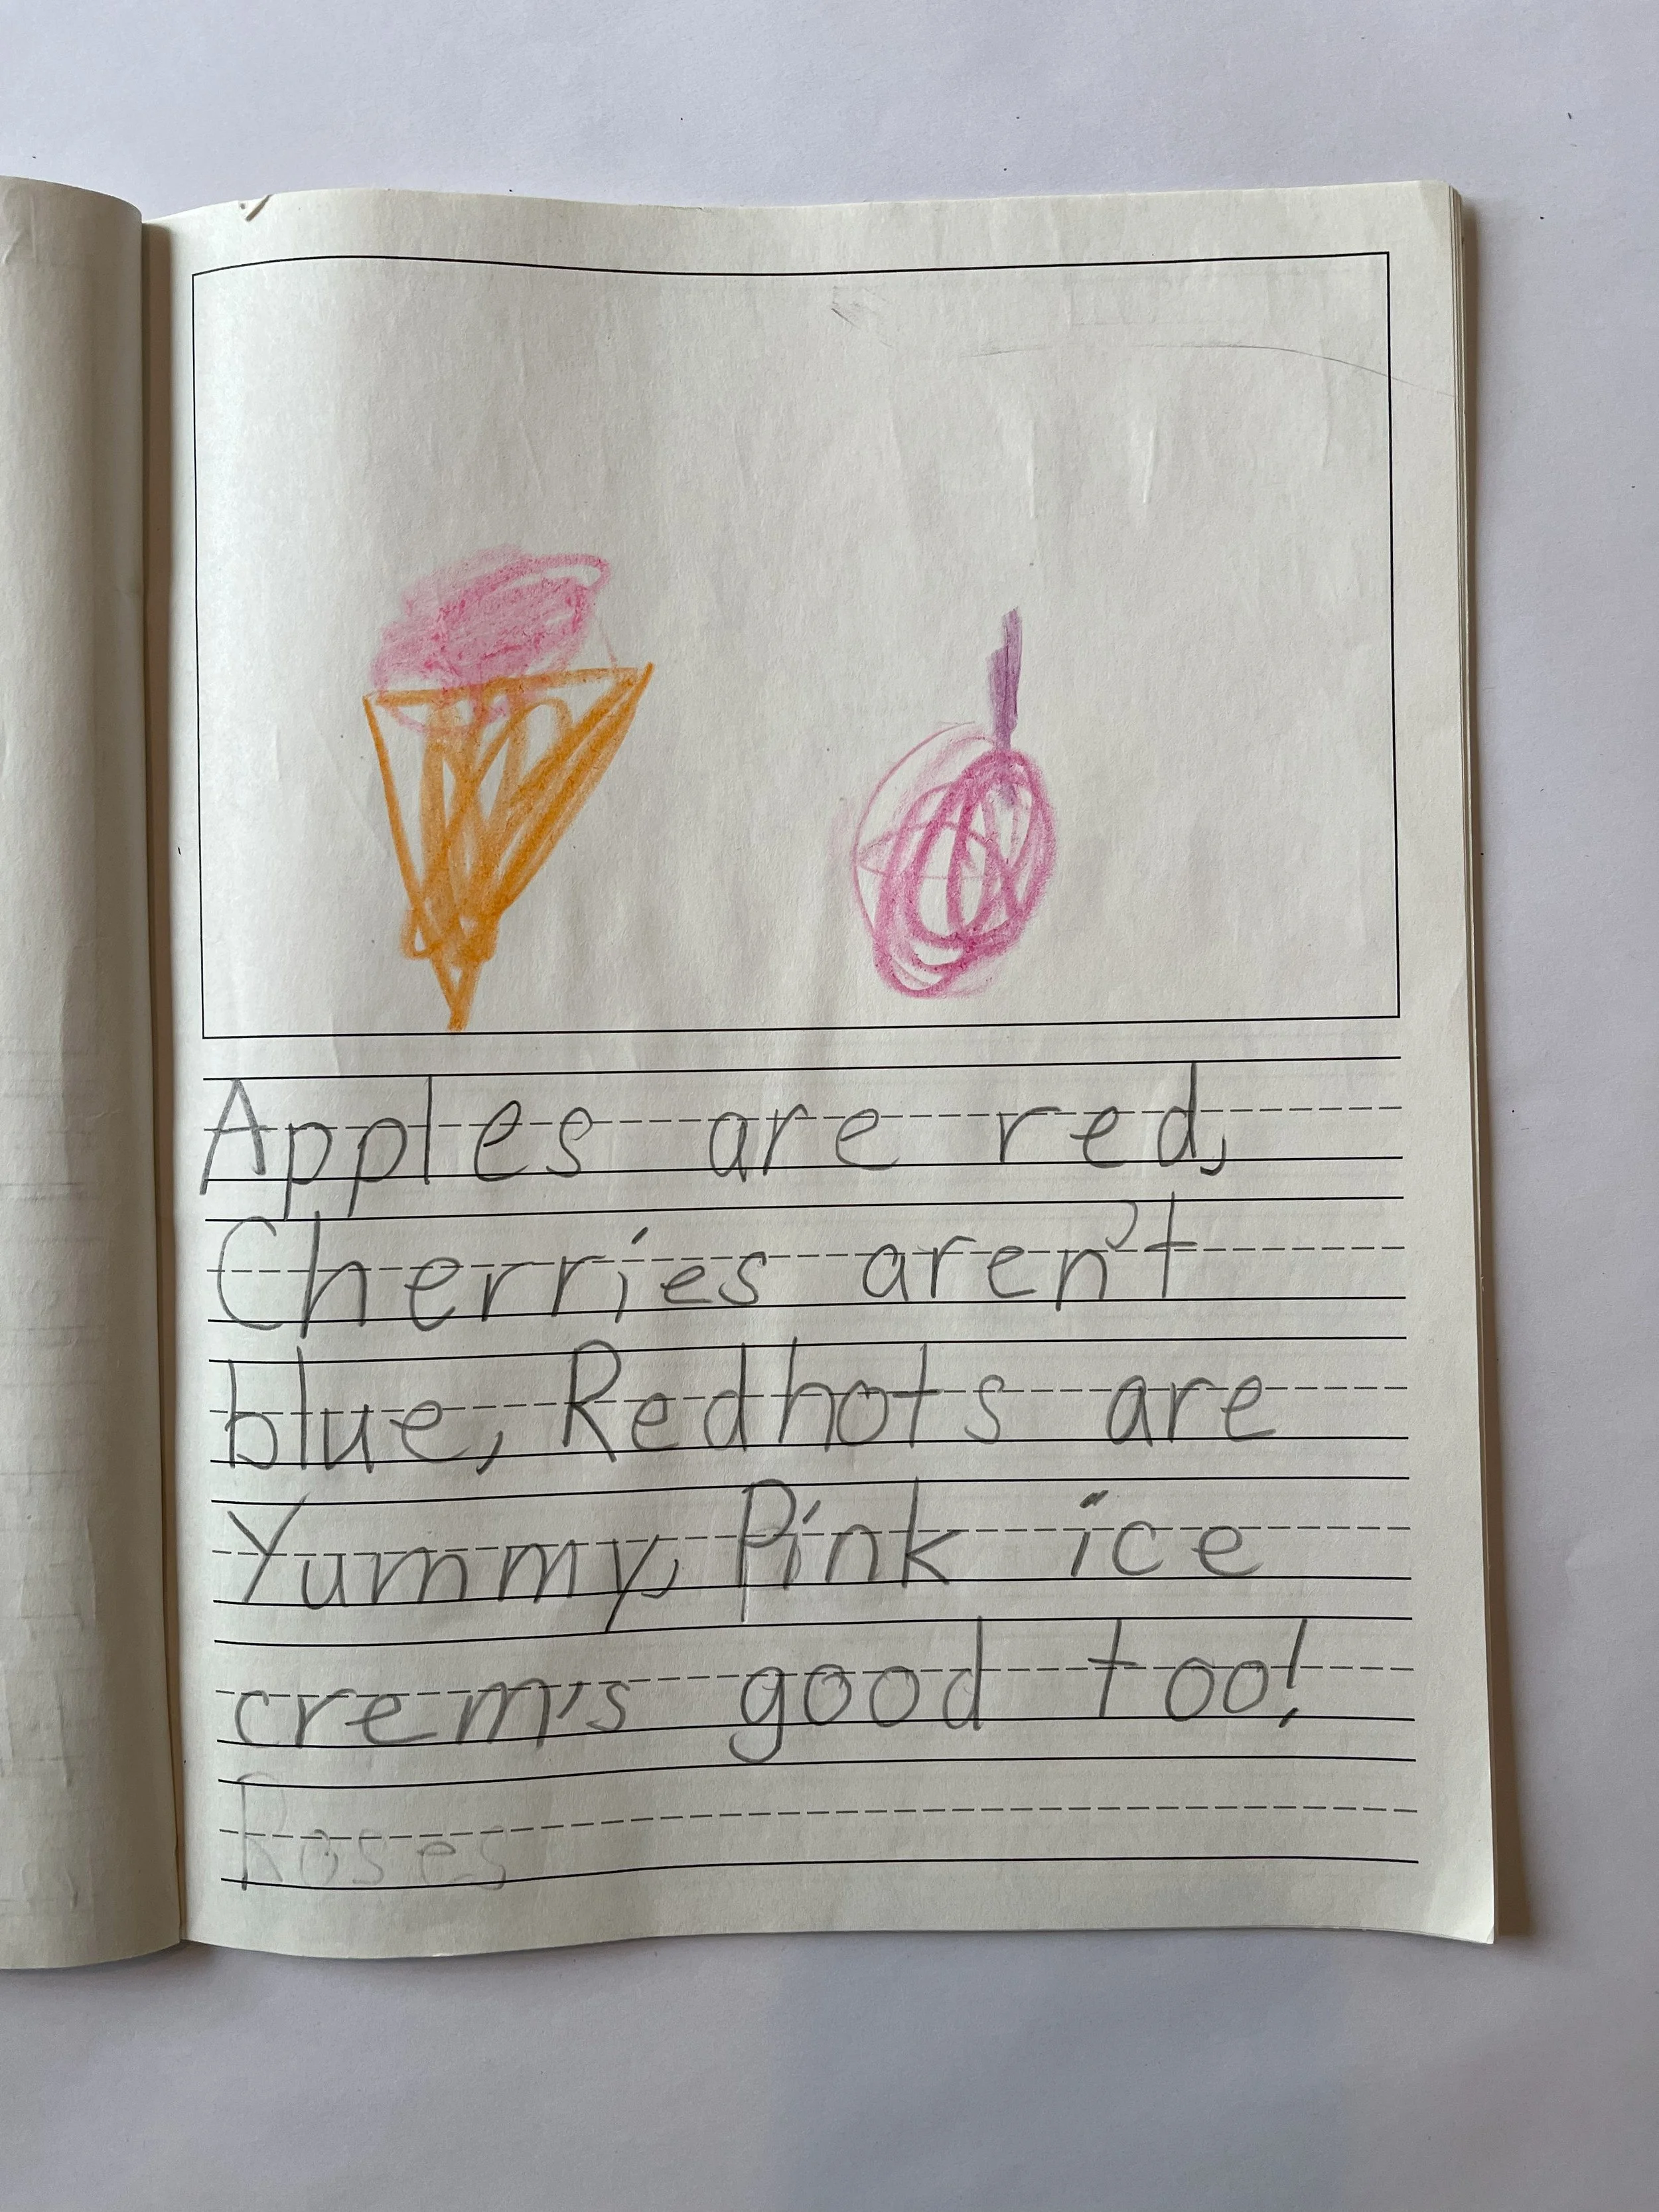 Apples are red,
Cherries aren't
blue, Redhots are
Yummy, Pink ice
crem's good too!
Roses